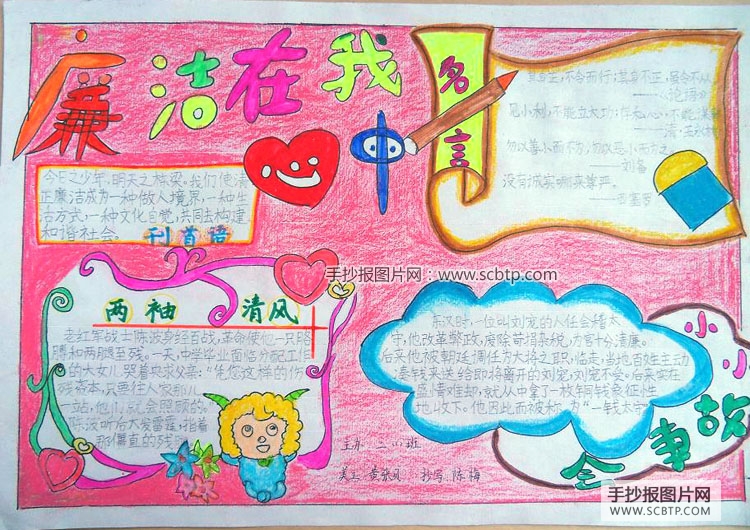 廉洁在我
心中
名言
其身正,不令而行;其身不正,虽令不从。
——论语
见小利,不能立大功;存私心,不能谋
——清·
勿以善小而不为,勿以恶小而为之。
——刘备
没有诚实哪来尊严。
——西塞罗
今日之少年,明天之栋梁。我们使清
正廉洁成为一种做人境界,一种生
活方式,一种文化自觉,共同去构建
和谐社会。
刊首语
手抄报图片网:www.scbtp.com
两袖清风
老红军战士陈波身经百战,革命使他一只胳
膊和两腿至残。一天,中学毕业面临分配工作
的大女儿哭着央求父亲:"凭您这样的伤
残资本,只要往人家那儿
一站,他们就会照顾的。
陈波听后大发雷霆,指着
那僵直的残
东汉时,一位叫刘宠的人任会稽太
守,他改革弊政,废除苛捐杂税,为官十分清廉。
后来他被朝廷调任为大将之职,临走,当地百姓主动
凑钱来送给即将离开的刘宠,刘宠不受。后来实在
盛情难却,就从中拿了一枚铜钱象征性
地收下。他因此而被称为"一钱太守
小小
故事
会
主办 三八班
美工 黄 凤 抄写 陈梅
手抄报图片网
WWW.SCBTP.COM